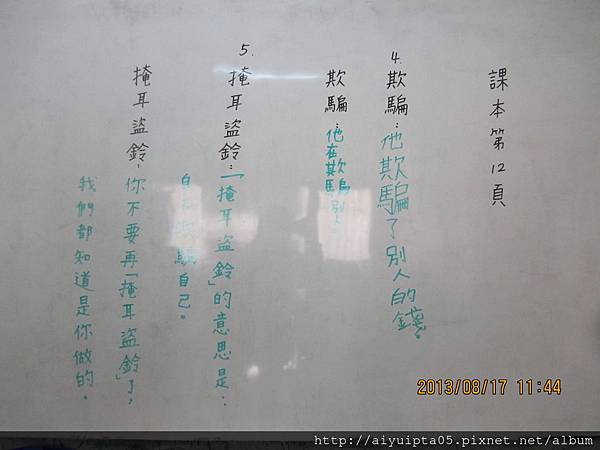 課本第12頁
4. 欺騙：他欺騙了別人的錢。
欺騙：他在欺騙別人
5. 掩耳盜鈴：「掩耳盜鈴」的意思是：
自 騙自己。
掩耳盜鈴，你不要再「掩耳盜鈴」了，
我們都知道是你做的。
2013/08/17 11:44
http://aiyuipta05.pixnet.net/album